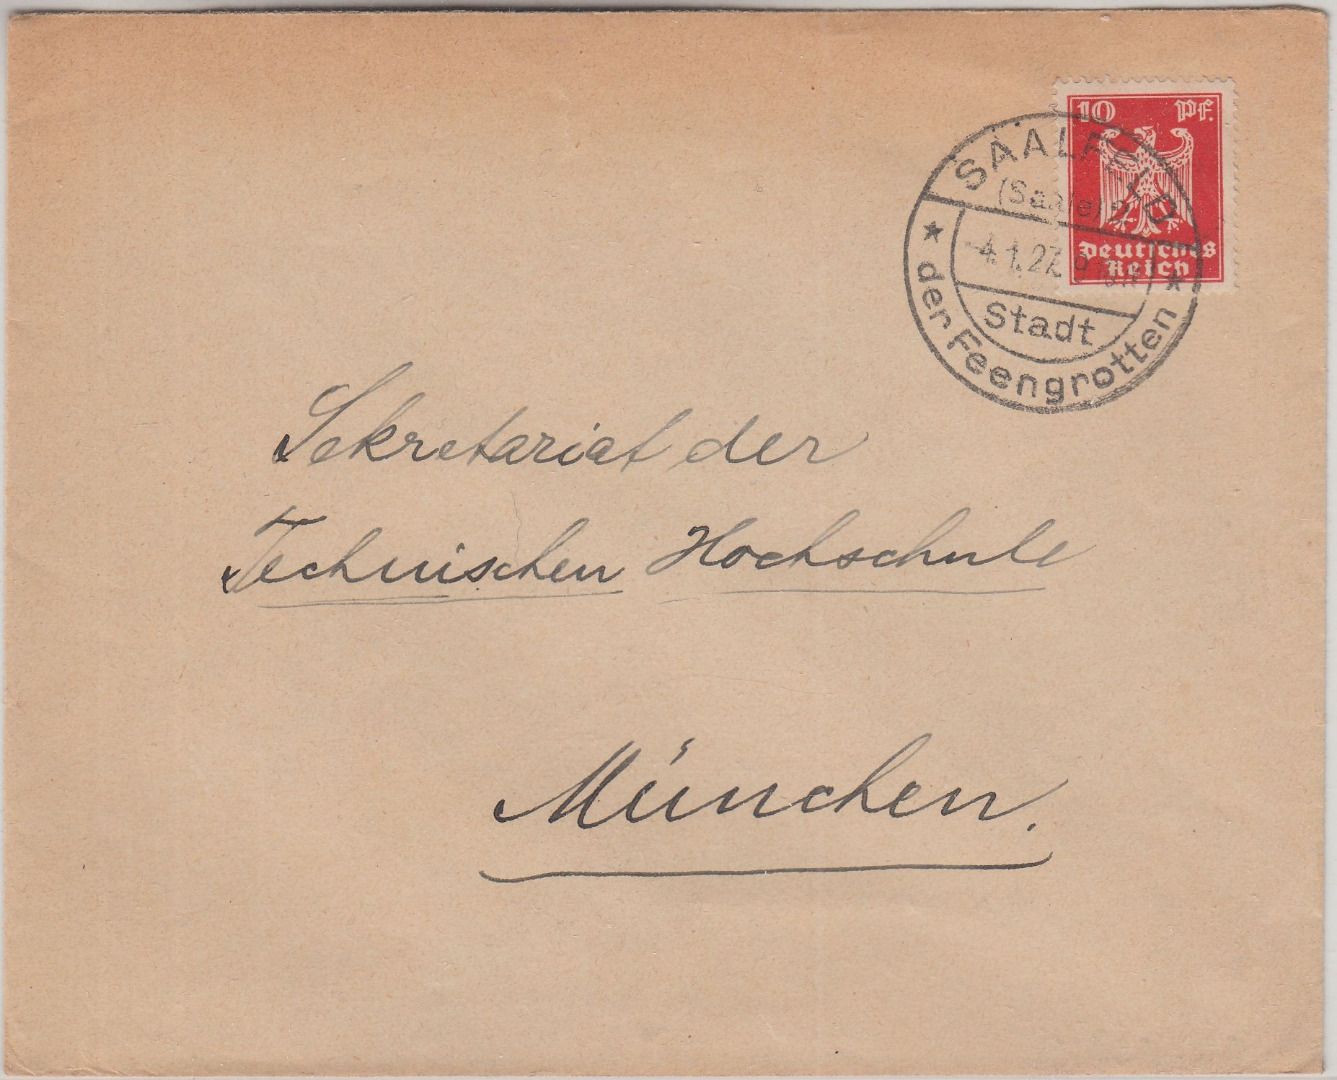 10 Pf.
Deutsches
Reich
SAALFELD
(Saale)
4.1.27
Stadt
der Feengrotten
Sekretariat der
Technischen Hochschule
München.